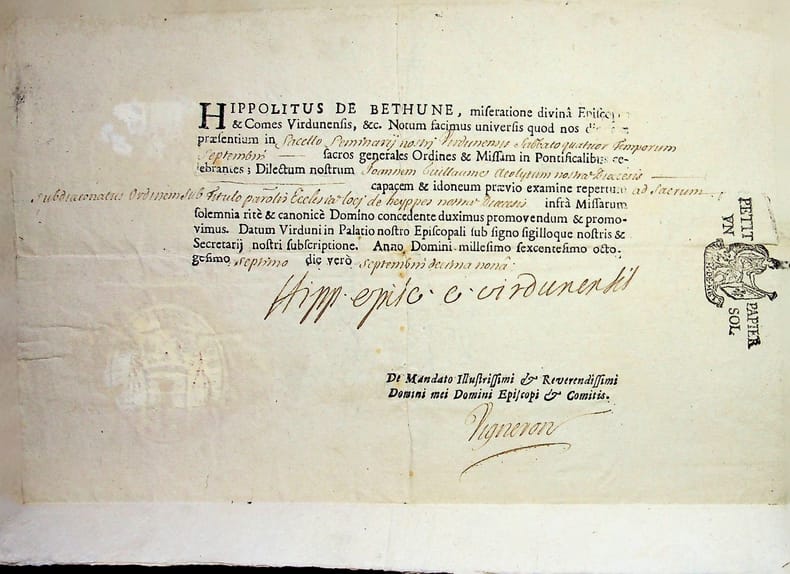 HIPPOLITUS DE BETHUNE, miſeratione divinâ Epiſcop
& Comes Virdunenſis, &c. Notum facimus univerſis quod nos
præſentium in Sacello Seminarij noſtri Virdunenſis Sabbato quatuor Temporum
Septembris sacros generales Ordines & Miſſam in Pontificalibus ce-
lebrantes; Dilectum noſtrum Joannem Guillaumes Acolytum noſtræ Diœcesis
capacem & idoneum prævio examine repertum ad Sacrum
Subdiaconatus Ordinem sub Titulo Ecclesiæ loci de heyppes noſtræ Diœcesis infrà Miſſarum
ſolemnia ritè & canonicè Domino concedente duximus promovendum & promo-
vimus. Datum Virduni in Palatio noſtro Epiſcopali ſub ſigno ſigilloque noſtris &
Secretarij noſtri ſubſcriptione. Anno Domini milleſimo ſexcenteſimo octo-
geſimo septimo die verò septembris decima nonâ.
Hipp. episc. c. virdunensis
De Mandato Illuſtriſſimi & Reverendiſſimi
Domini mei Domini Epiſcopi & Comitis.
Vigneron
PETIT PAPIER
UN SOL